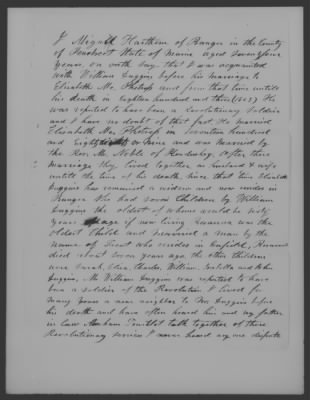 I Mig Harthorn of Bangor in the County
of Penobscot State of Maine aged Seventy four
years, on oath say, that I was acquainted
with William Huggins before his marriage to
Elizabeth Mc and from that time until
his death in Eighteen hundred and three (1803) He
was reputed to have been a Revolutionary Soldier
and I have no doubt of that fact He married
Elizabeth Mc in Seventeen hundred
and Eighty or nine and was married by
the Rev. Mr. Noble of After their
marriage they lived together as husband & wife
until the time of his death Since that time Elizabeth
Huggins has remained a widow and now resides in
Bangor She had seven Children by William
Huggins the oldest of whom would be sixty
years of age if now living was the
oldest Child and married a man by the
name of Trent who resides in Enfield,
died about seven years ago the other children
were Sarah, Eliza, Charles, William, and John
Huggins, Mr William Huggins was reputed to have
been a soldier of the Revolution I lived for
many years a near neighbor to Mr. Huggins before
his death and have often heard him and my father
in law talk together of their
Revolutionary services I never heard any one dispute